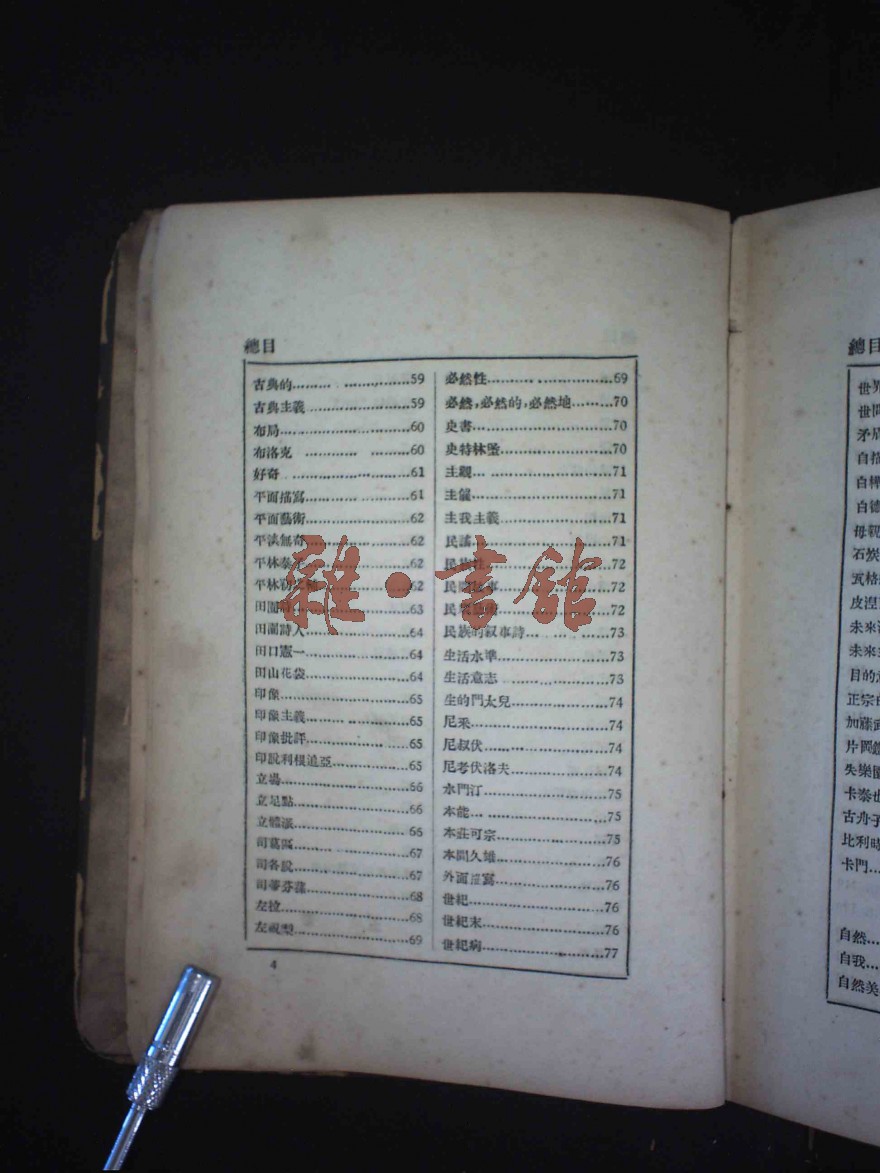 總目
古典的……… ………………59
古典主義 ……………………59
布局……………………………60
布洛克 ………… ………60
好奇 ………………………61
平面描寫………………………61
平面藝術………………………62
平淡無奇………………………62
平林泰子………………………62
平林初之輔……………………62
田園詩…………………………63
田園詩人………………………64
田口憲一………………………64
田山花袋………………………64
印像……………………………65
印像主義……… ……………65
印像批評………………… …65
印設利根追亞…………………65
立場……………………………66
立足點…………………………66
立體派…………………………66
司葛德…………………………67
司各脫…………………………67
司蒂芬蓀………………………68
左拉……………………………68
左視型…………………………69
4
必然性………… ……………69
必然,必然的,必然地………70
史書……………………………70
史特林堡………………………70
主觀… ………………………71
主體……………………………71
主我主義………………………71
民謠……………………………71
民族性…………………………72
民間故事………………………72
民眾藝術………………………72
民族的叙事詩… … … …73
生活水準………………………73
生活意志 ……………………73
生的門太兒……………………74
尼采……………………………74
尼叔伏…………………………74
尼考伏洛夫……………………74
水門汀…………………………75
本能… … …………………75
本莊可宗………………………75
本間久雄………………………76
外面描寫………………………76
世紀……………………………76
世紀末…………………………76
世紀病…………………………77
雜·書館
總目
世界
世間
矛盾
自然…
自我…
自然美
母親
石炭
瓦格
未來
未來主
目的意
正宗白
加藤武
失樂園
卡泰也
比利時
卡門…